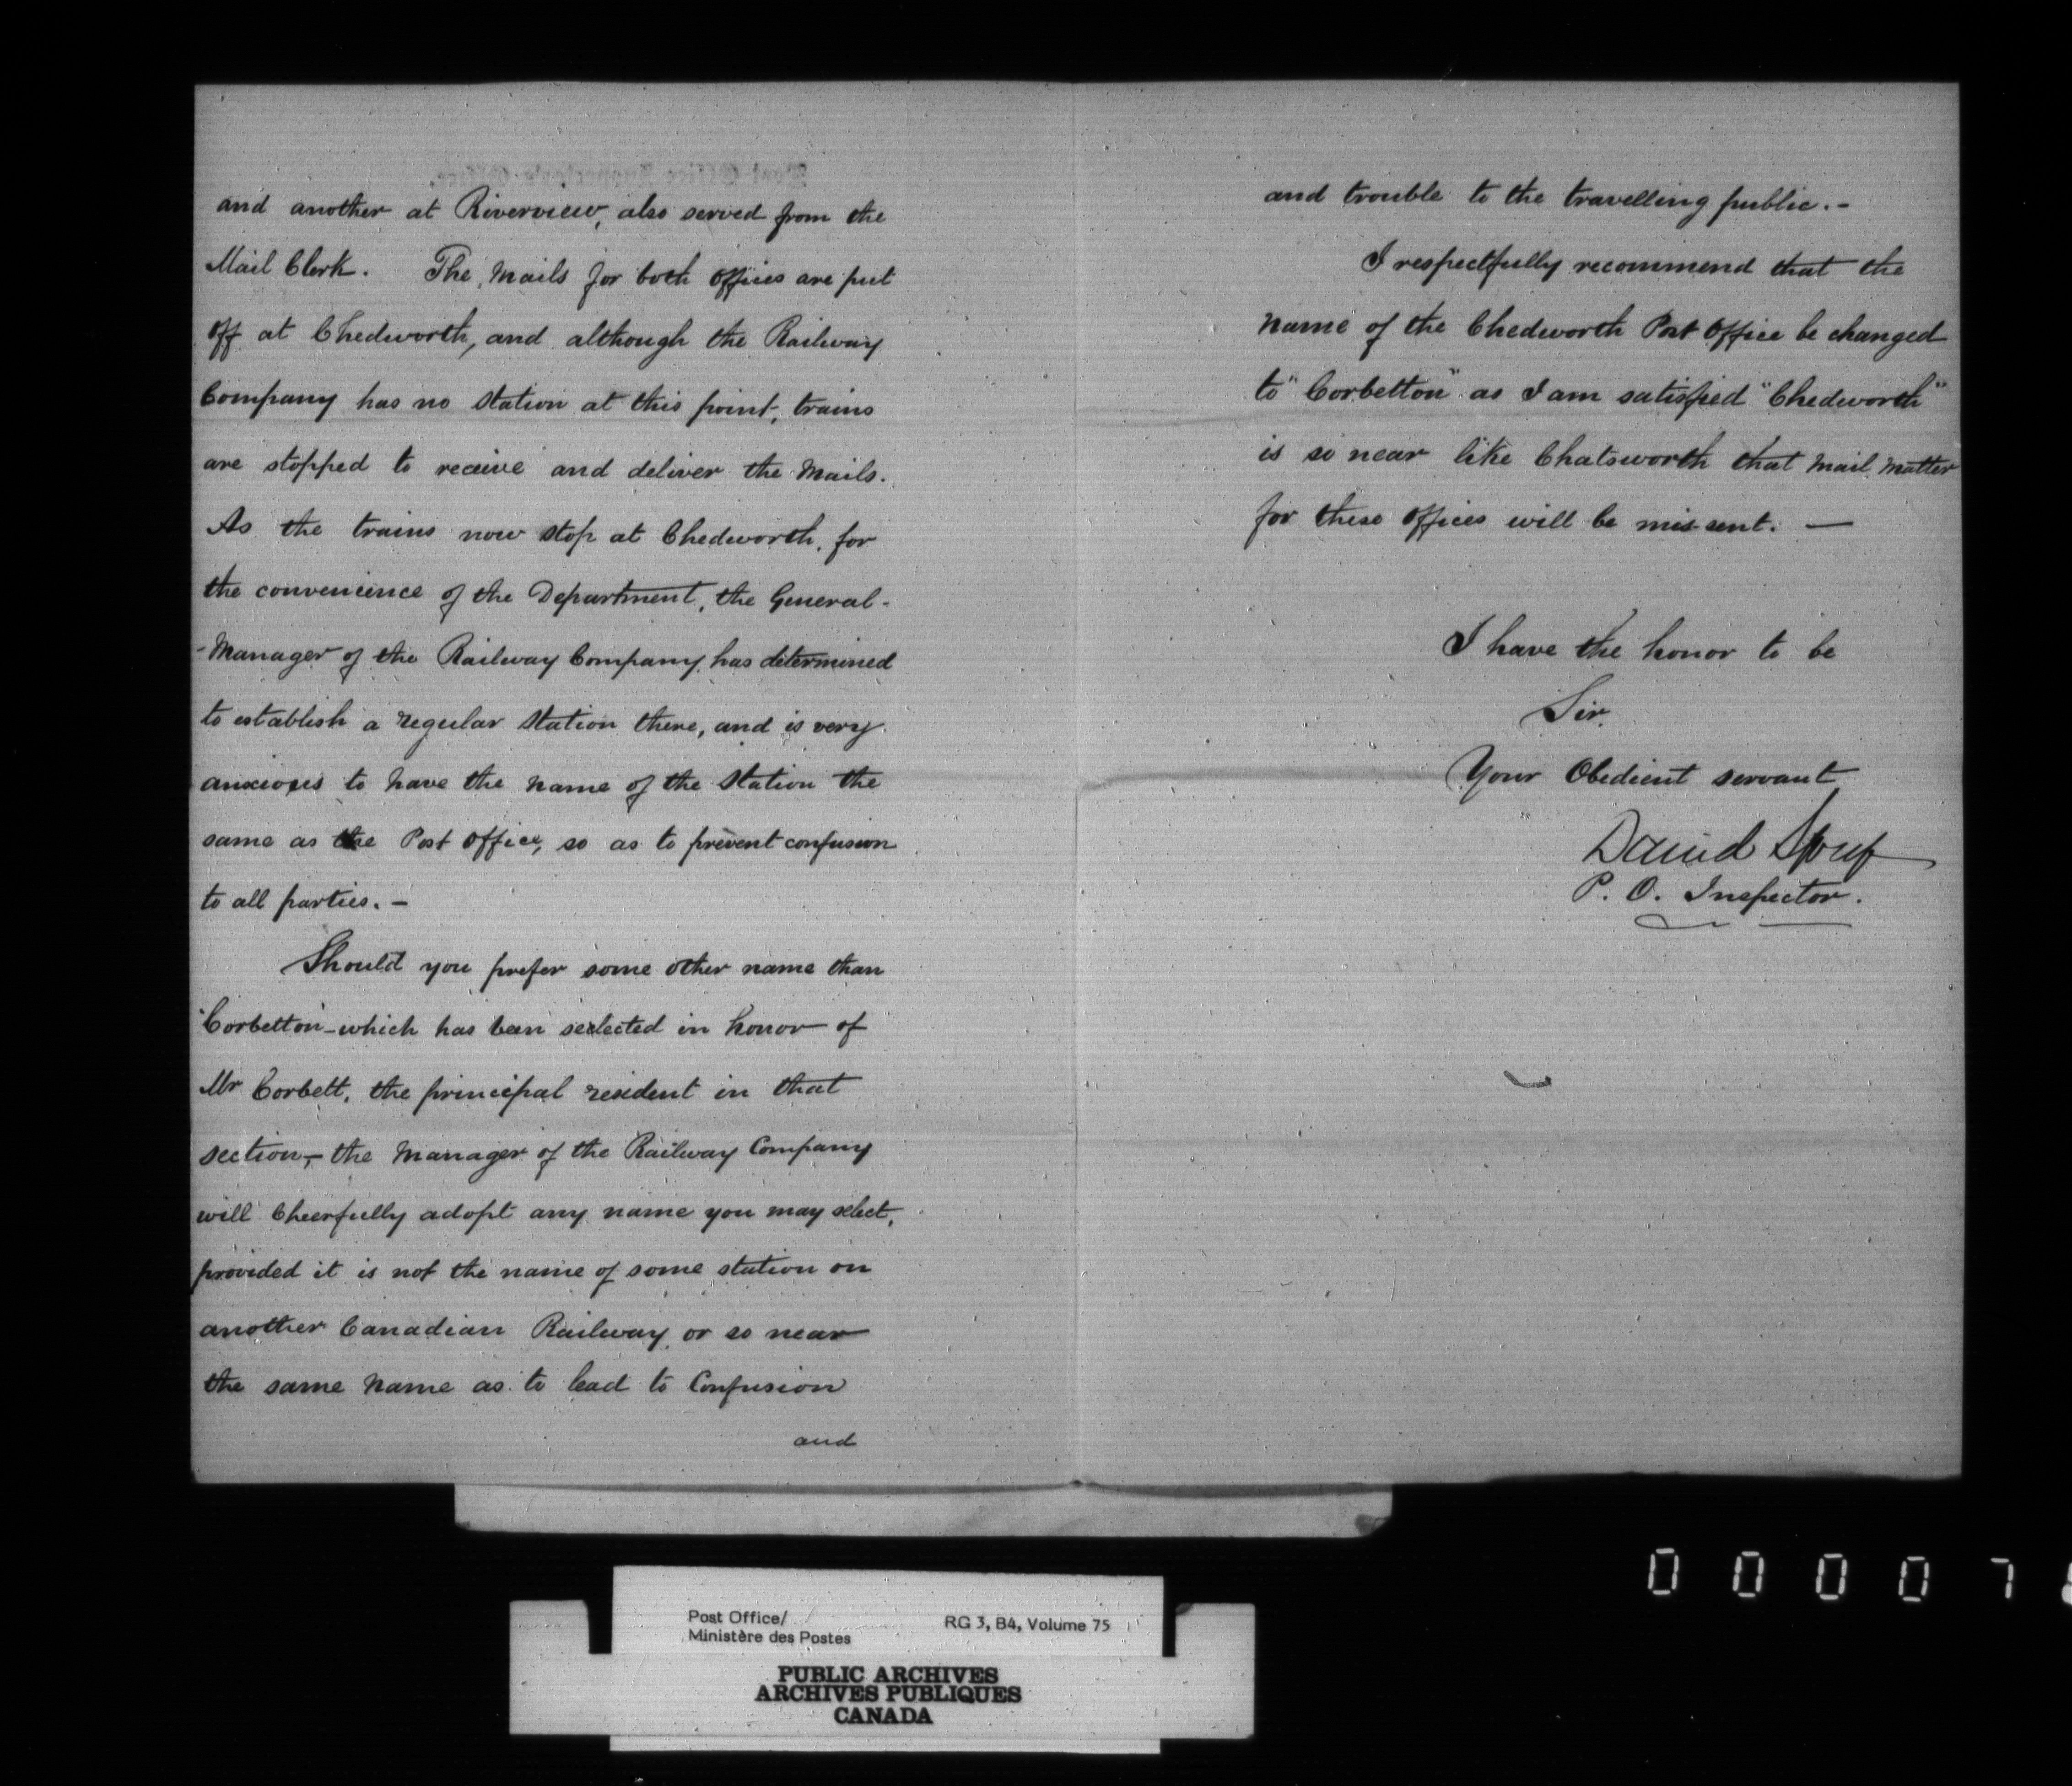 and another at Riverview, also served from the
Mail Clerk. The Mails for both Offices are put
off at Chedworth, and although the Railway
Company has no Station at this point, trains
are stopped to receive and deliver the Mails.
As the trains now stop at Chedworth, for
the convenience of the Department, the General-
-Manager of the Railway Company, has determined
to establish a regular Station there, and is very
anxious to have the name of the Station the
same as the Post Office, so as to prevent confusion
to all parties. -
Should you prefer some other name than
"Corbetton" - which has been selected in honor of
Mr Corbett, the principal resident in that
section, - the Manager of the Railway Company
will Cheerfully adopt any name you may select,
provided it is not the name of some station on
another Canadian Railway, or so near
the same name as to lead to Confusion
and
and trouble to the travelling public. -
I respectfully recommend that the
name of the Chedworth Post Office be changed
to "Corbetton" as I am satisfied "Chedworth"
is so near like Chatsworth that Mail Matter
for these Offices will be mis-sent. —
I have the honor to be
Sir,
Your Obedient servant
David
P. O. Inspector.
Post Office Inspector's Office,
Post Office/
Ministère des Postes
RG 3, B4, Volume 75
PUBLIC ARCHIVES
ARCHIVES PUBLIQUES
CANADA
0 0 0 0 7